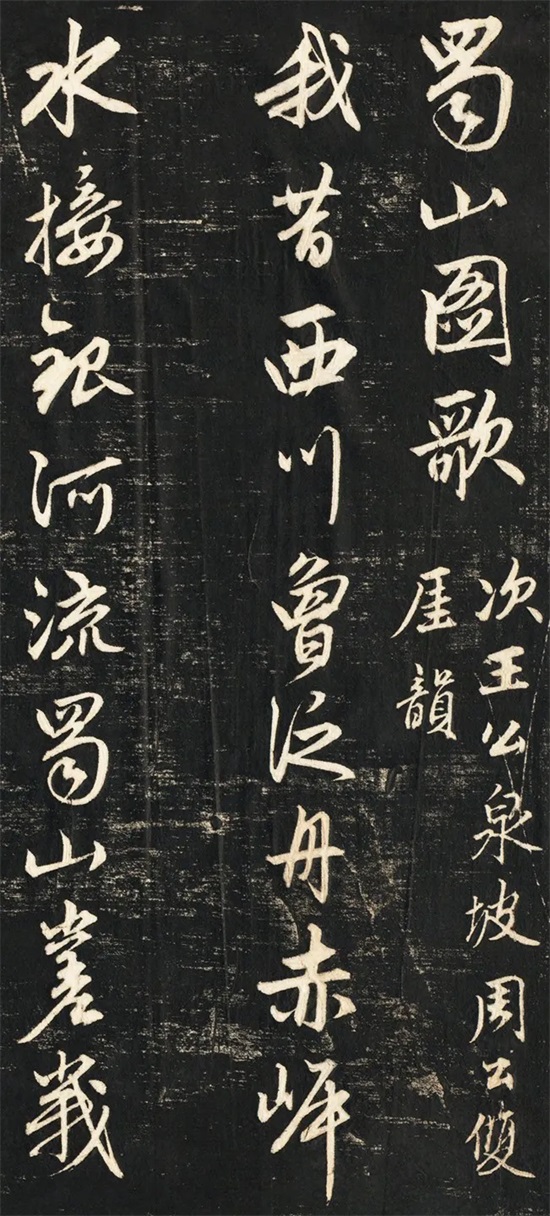 蜀山圖歌
次王公泉坡周公雙
厓韻
我昔西川曾泛舟赤岬
水接銀河流蜀山嵳峩